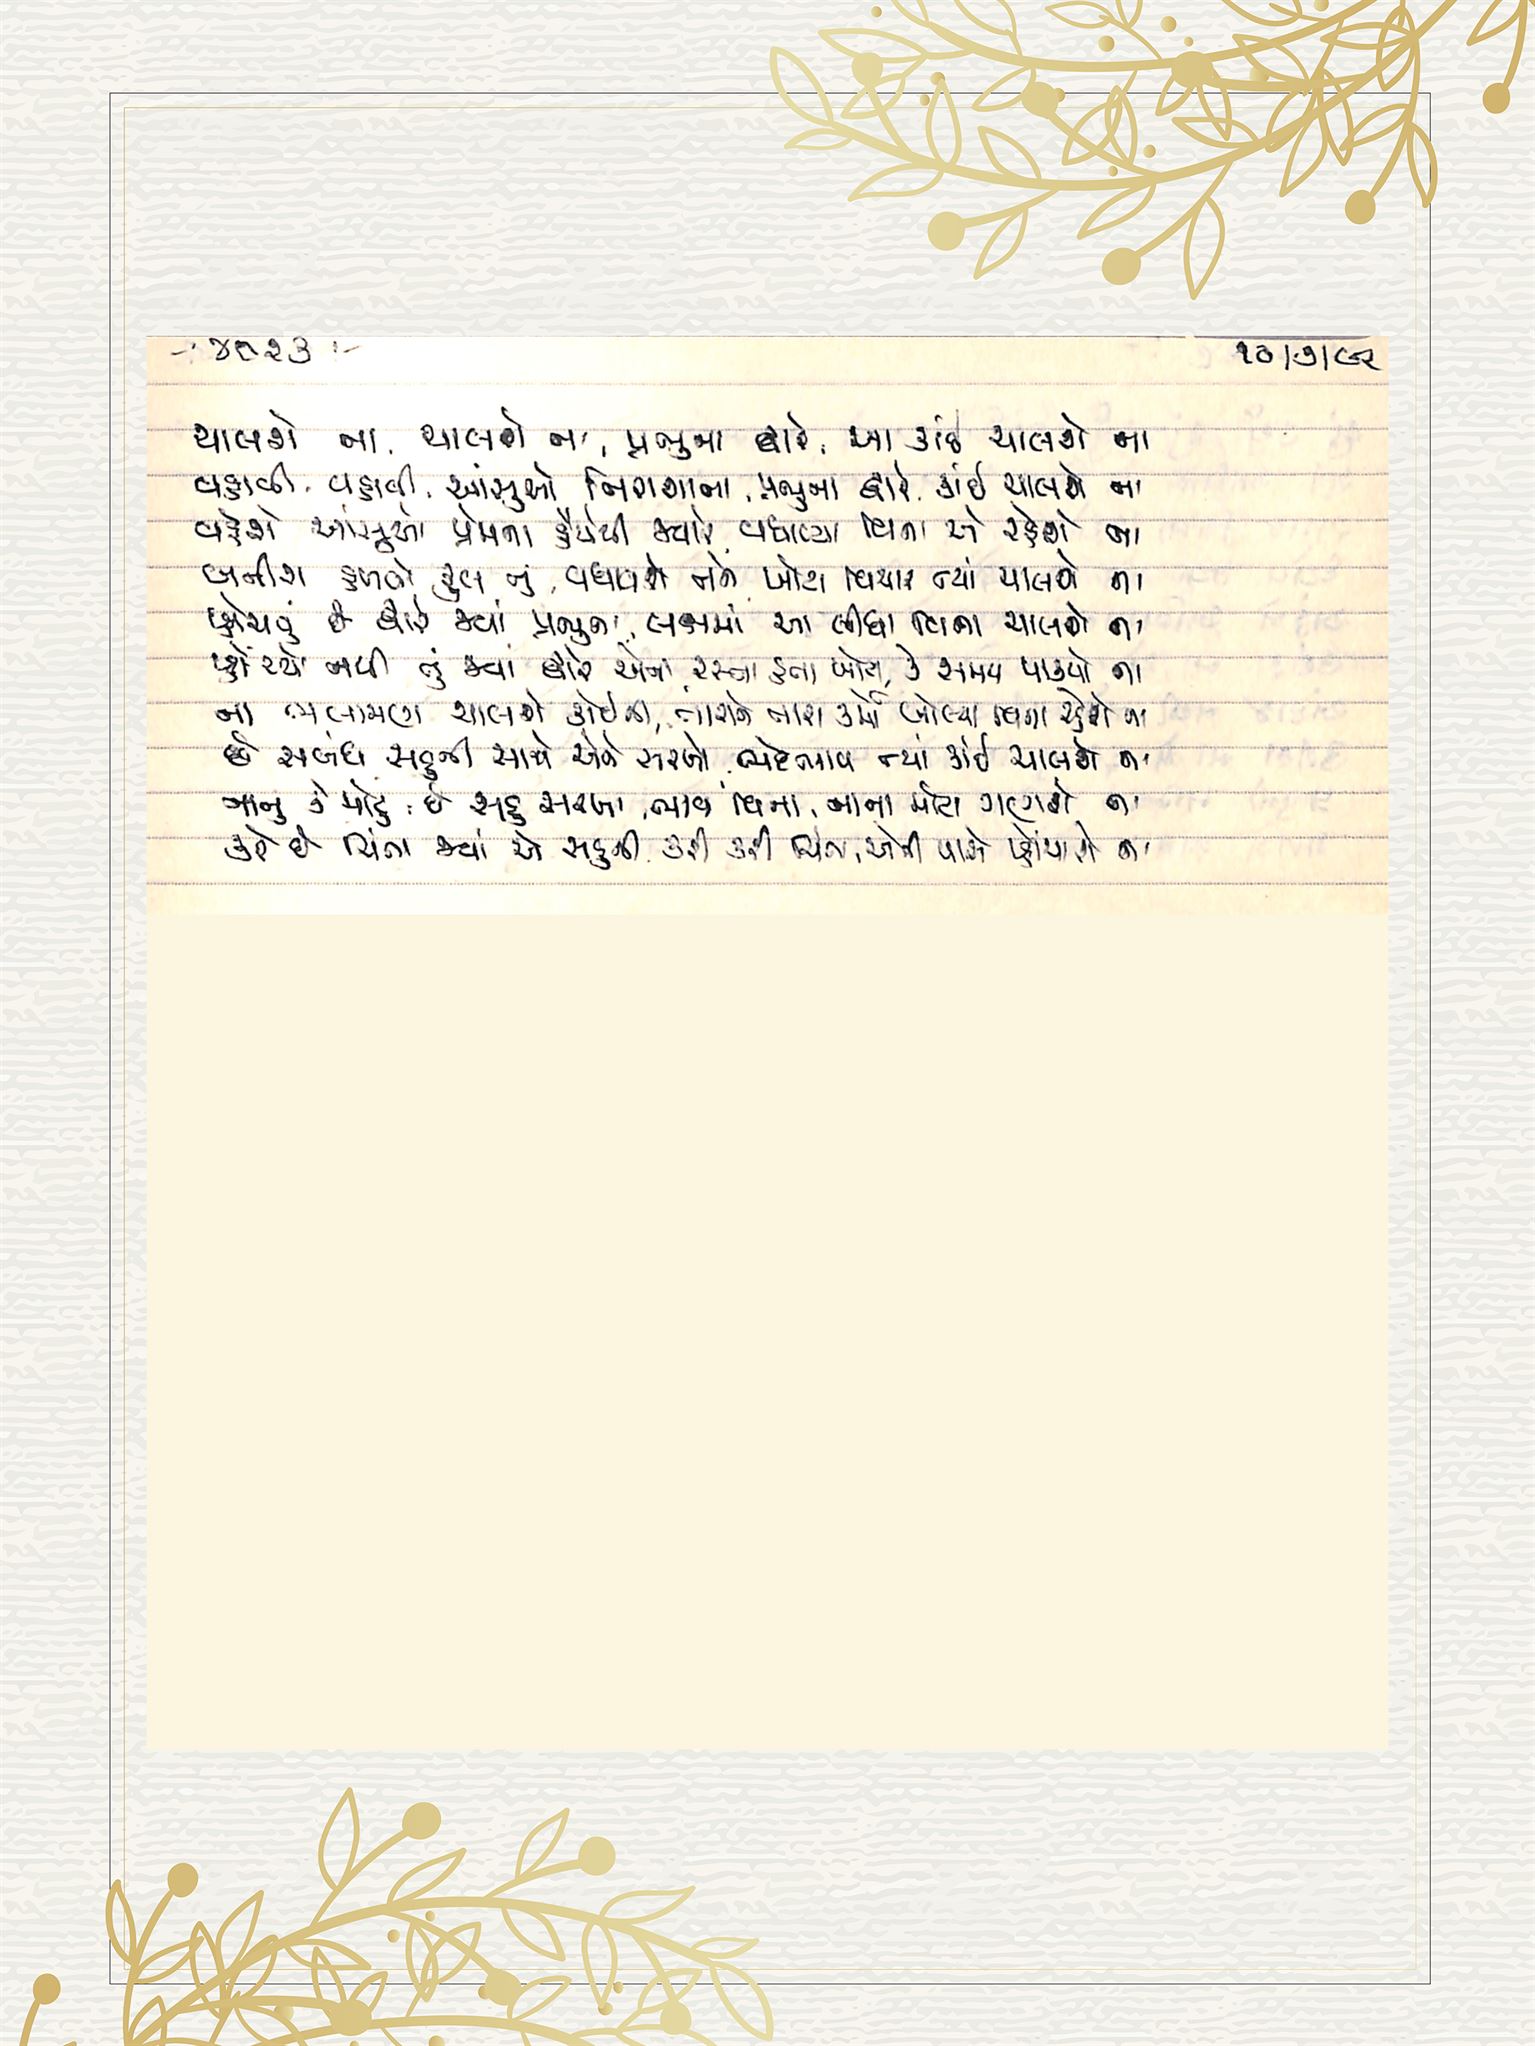 -: ૪૮૨૩ :-
૨૦/૭/૯૨
ચાલશે ના, ચાલશે ના, પ્રભુના દ્વારે, આ કાંઈ ચાલશે ના
વહાવી, વહાવી, આંસુઓ નિરાશાના, પ્રભુના દ્વારે, કાંઈ ચાલશે ના
વહેશે આંસુઓ પ્રેમના હૈયેથી જ્યારે, વધાવ્યા વિના એ રહેશે ના
બનીશ હળવો ફૂલ તું, વધાવશે તને, ખોટા વિચાર ત્યાં ચાલશે ના
પહોંચવું છે દ્વારે જ્યાં પ્રભુના, લક્ષમાં આ લીધા વિના ચાલશે ના
પહોંચ્યો નથી તું જ્યાં દ્વારે એના, રસ્તા હતા ખોટા, કે સમય પાક્યો ના
ના ભલામણ ચાલશે કોઈની, તારાને તારા કર્મો બોલ્યા વિના રહેશે ના
છે સબંધ સહુની સાથે એને સરખો, ભેદભાવ ત્યાં કાંઈ ચાલશે ના
નાનું કે મોટું, છે સહુ સરખા, ભાવ વિના, નાના મોટા ગણાશે ના
કરે છે ચિંતા જ્યાં એ સહુની, કરી કરી ચિંતા, એની પાસે પહોંચાશે ના